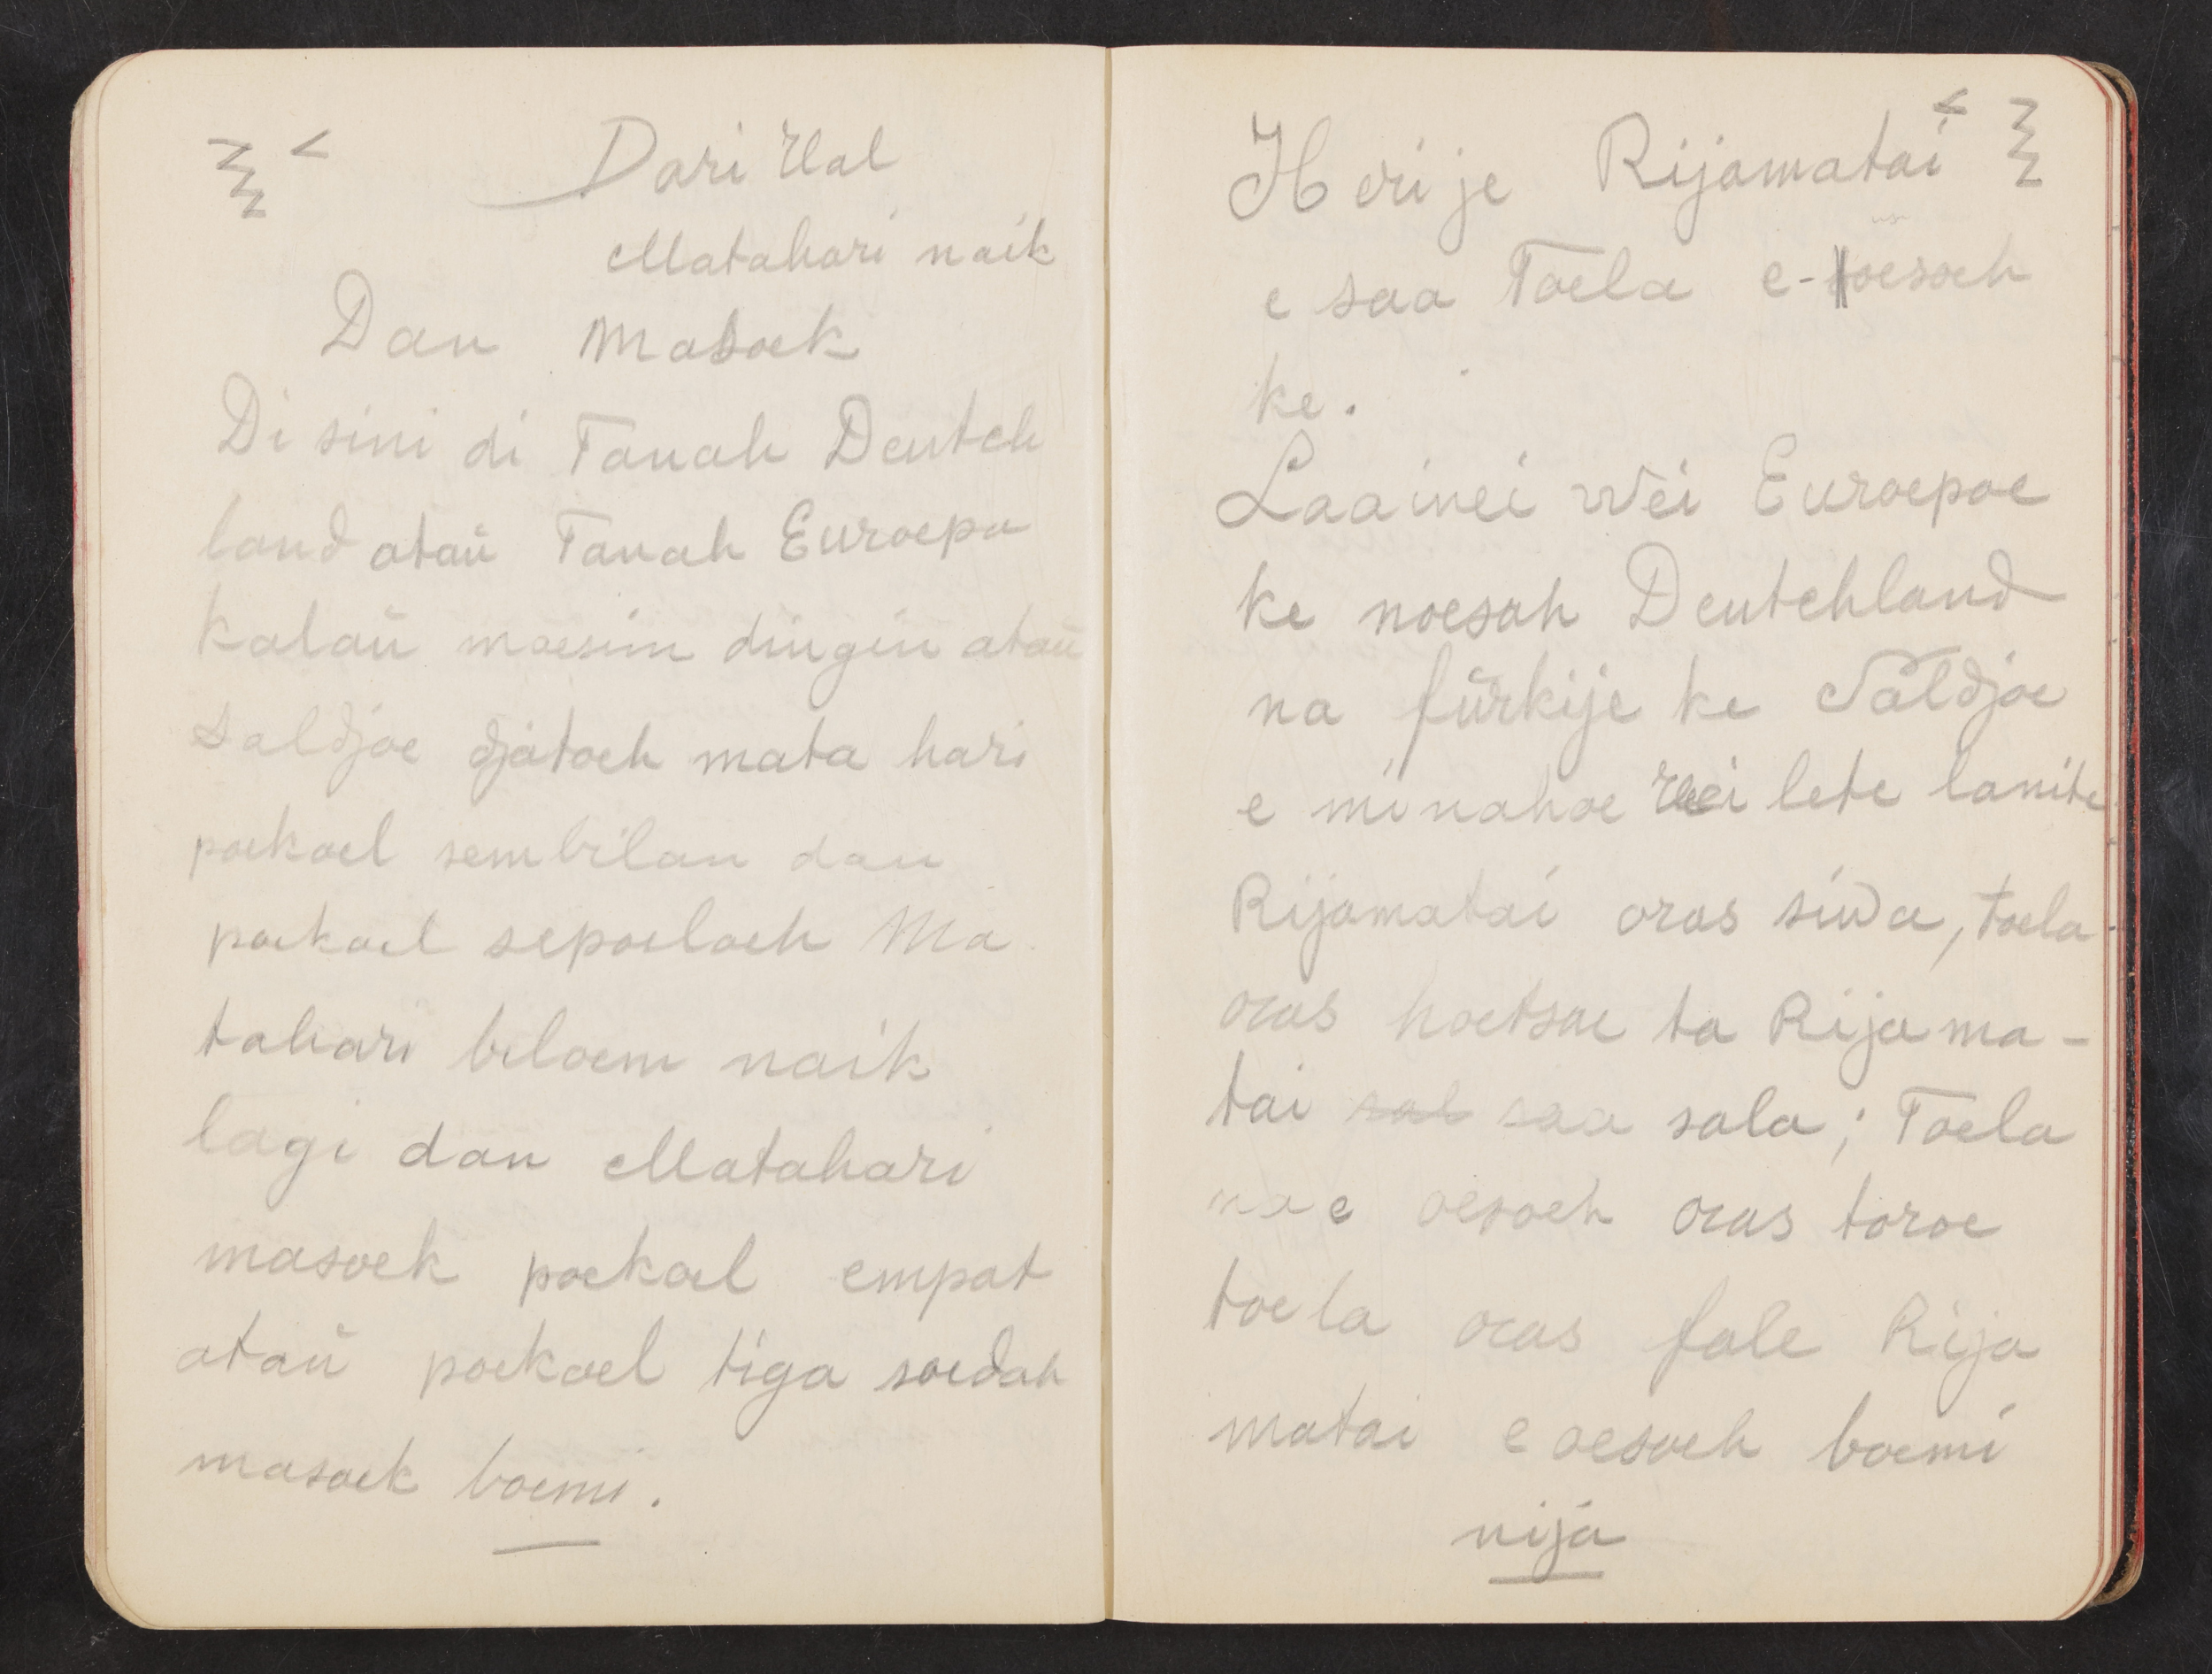 Dari Hal
Matahari naik
Dan Masoek
Di sini di Tanah Deutch
land ataŭ Tanah Euroepa
kalaŭ moesim dingin ataŭ
Saldjoe djatoeh mata hari
poekoel sembilan dan
poekoel sepoeloeh Ma
tahari beloem naik
lagi dan Matahari
masoek poekoel empat
ataŭ poekoel tiga soedah
masoek boemi.
Herije Rijamatai
e saa Toela e-oesoeh
ke.
Laainei wei Euroepae
ke noesah Deutchland
na fŭrkije ke Saldjoe
e minahoe lete lanite
Rijamatai oras siwa, toela
oras hoetsae ta Rijama-
tai saa sala; Toela
na e oesoeh oras toroe
toela oras fale Rija
matai e oesoeh boemi
nija